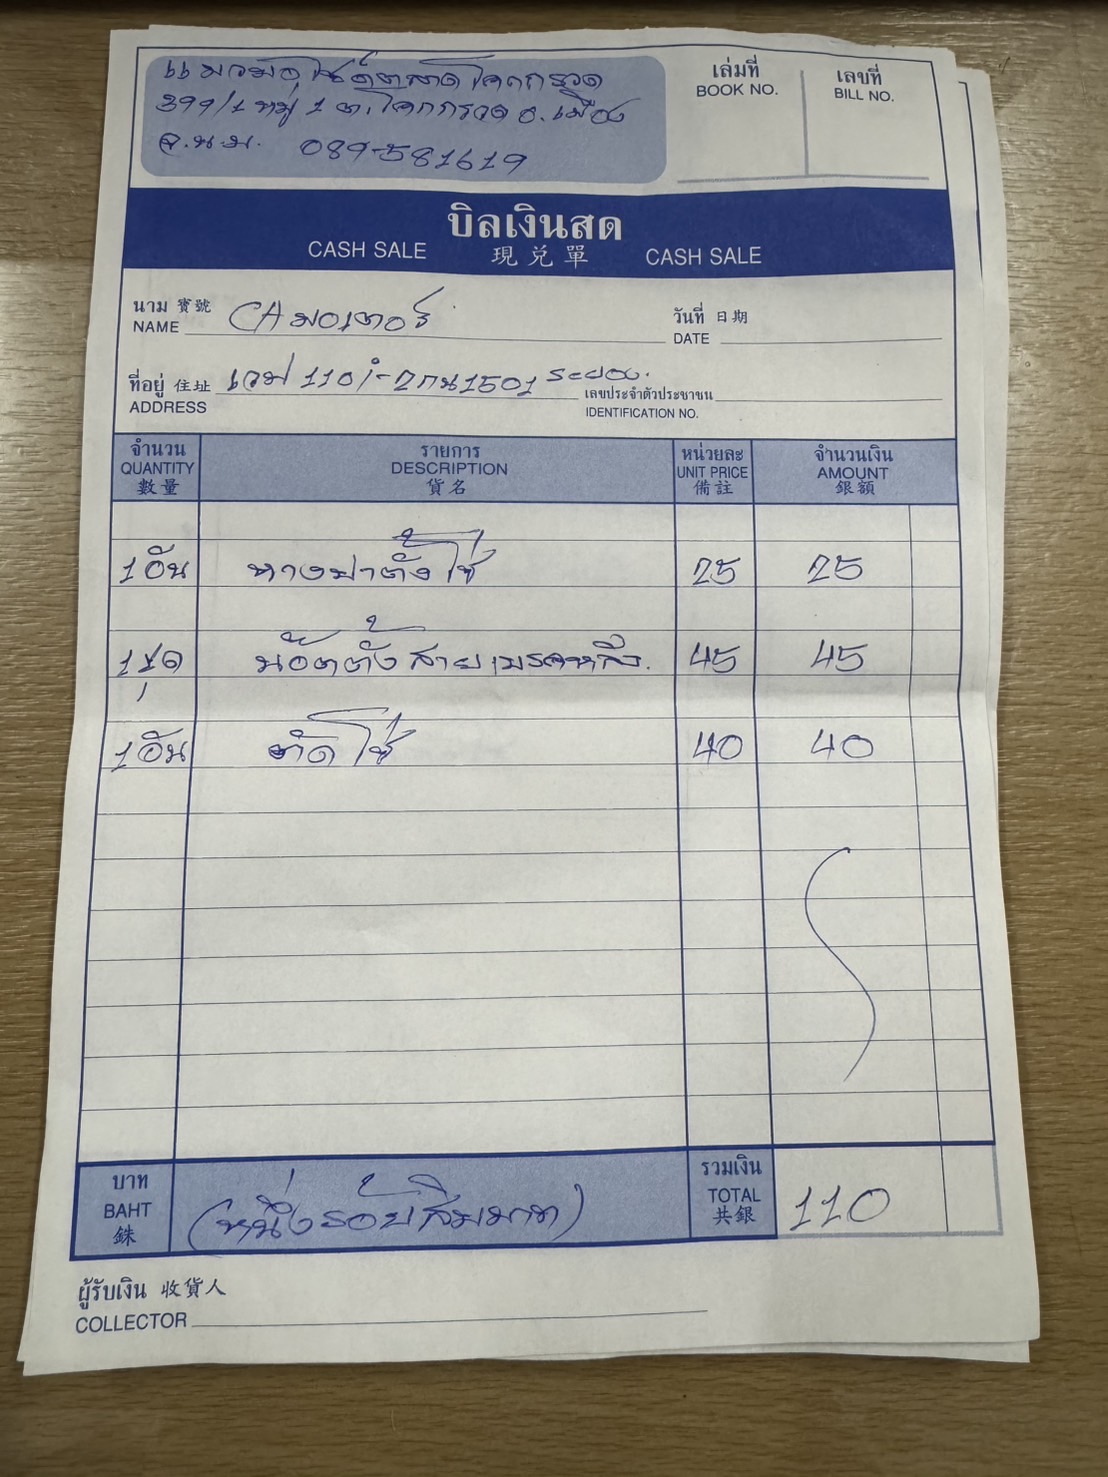 โคกกรวด
399/1 หมู่ 1 ต.โคกกรวด อ.เมือง
จ.น.ม. 089-581619
เล่มที่
BOOK NO.
เลขที่
BILL NO.
บิลเงินสด
CASH SALE 現兌單 CASH SALE
นาม 寶號
NAME CA มอเตอร์
วันที่ 日期
DATE
ที่อยู่ 住址 เวฟ 110i-2กน1501 ระยอง.
ADDRESS
เลขประจำตัวประชาชน
IDENTIFICATION NO.
จำนวน รายการ หน่วยละ จำนวนเงิน
QUANTITY DESCRIPTION UNIT PRICE AMOUNT
數量 貨名 備註 銀額
1 อัน หางปลาตั้งโซ่ 25 25
1 ชุด น๊อตตั้งสายเบรคหลัง. 45 45
1 อัน ตัดโซ่ 40 40
บาท
BAHT
銖
(หนึ่งร้อยสิบบาท)
รวมเงิน
TOTAL
共銀
110
ผู้รับเงิน 收貨人
COLLECTOR